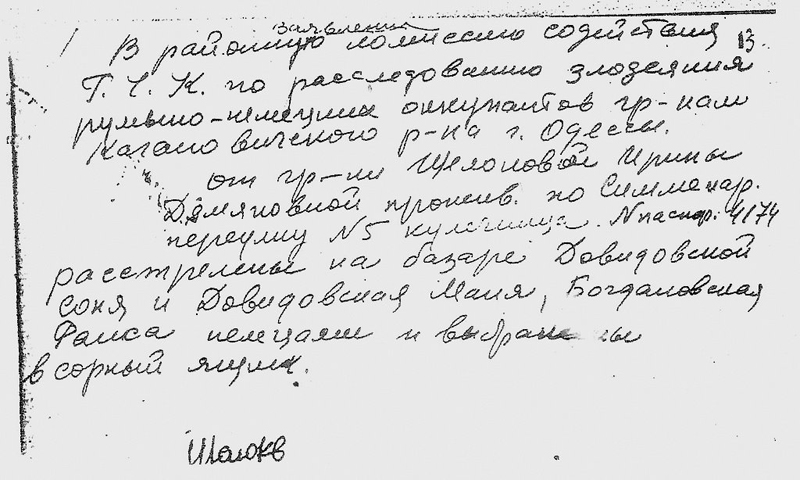 Заявление
В районную комиссию содействия 13.
Г. Ч. К. по расследованию злодеяния
румыно-немецких оккупантов гр-нам
Кагановичского р-на г. Одессы.
от гр-ки Щелоковой Ирины
Демяновной прожив. по
переулку N5 N паспор. 4174
расстрелены на базаре Довидовской
Соня и Довидовская Маня, Богдановская
Фаиса немецами и выбра ны
в сорный ящик.